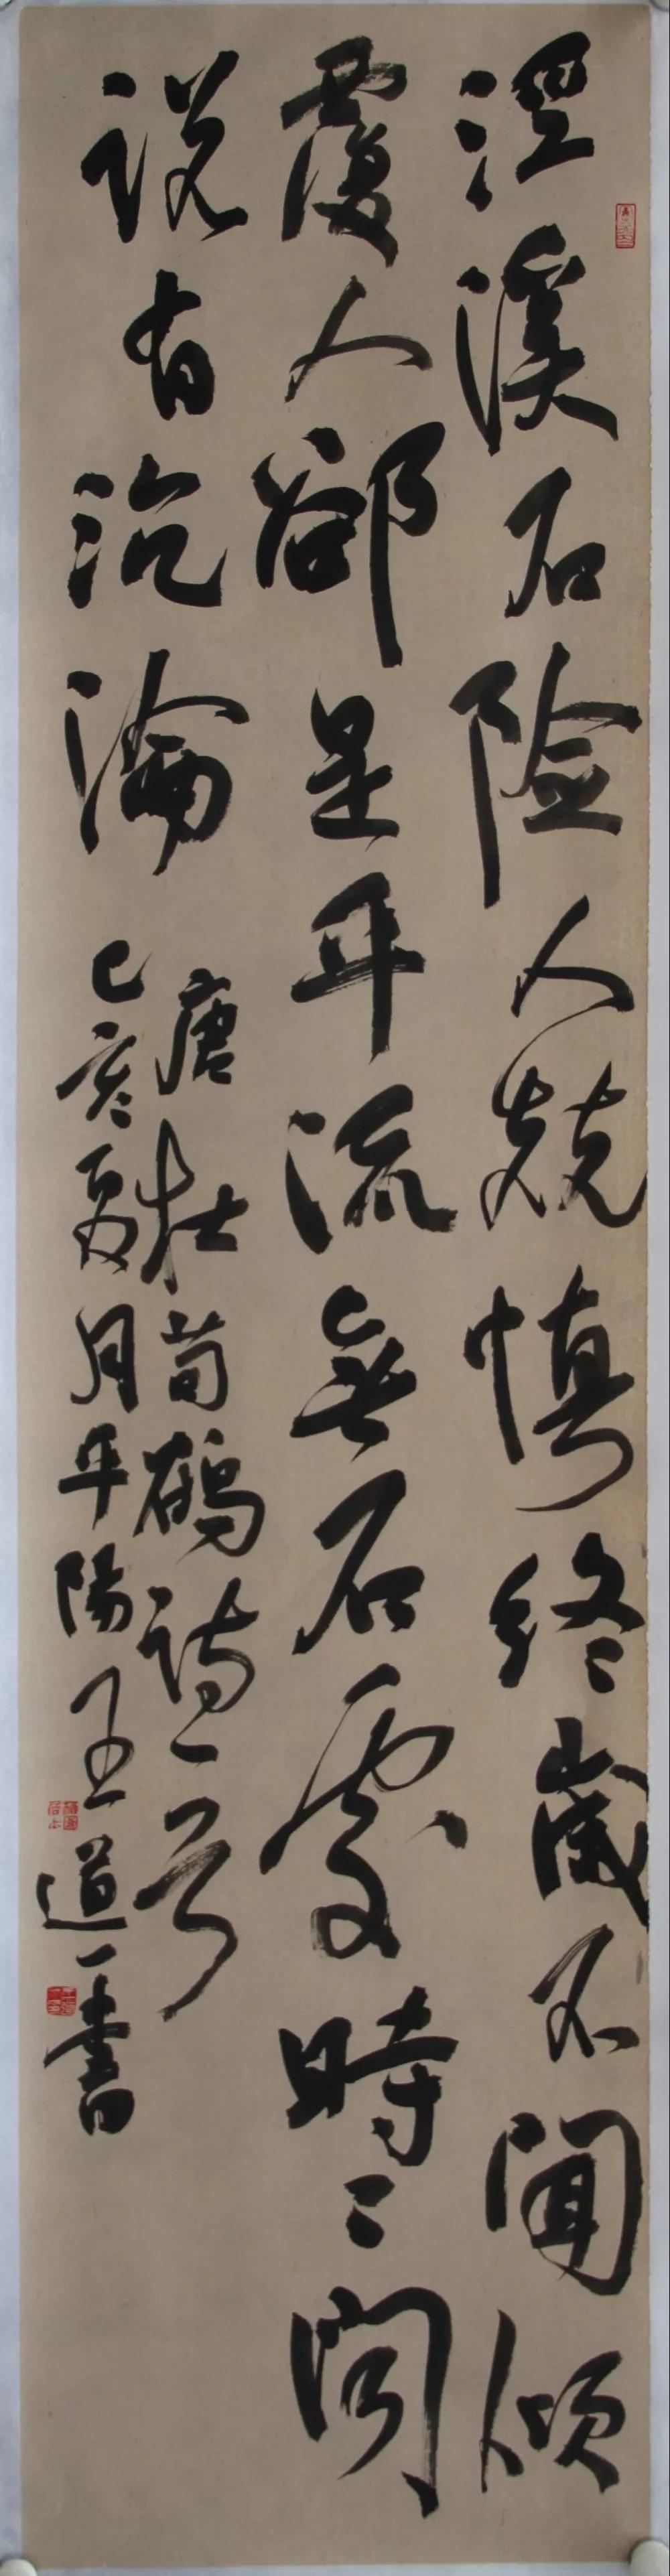 涇溪石險人兢慎終歲不聞傾
覆人卻是平流無石處時々聞
說有沉淪
唐杜荀鶴詩一首
己亥夏月平陽王道一書